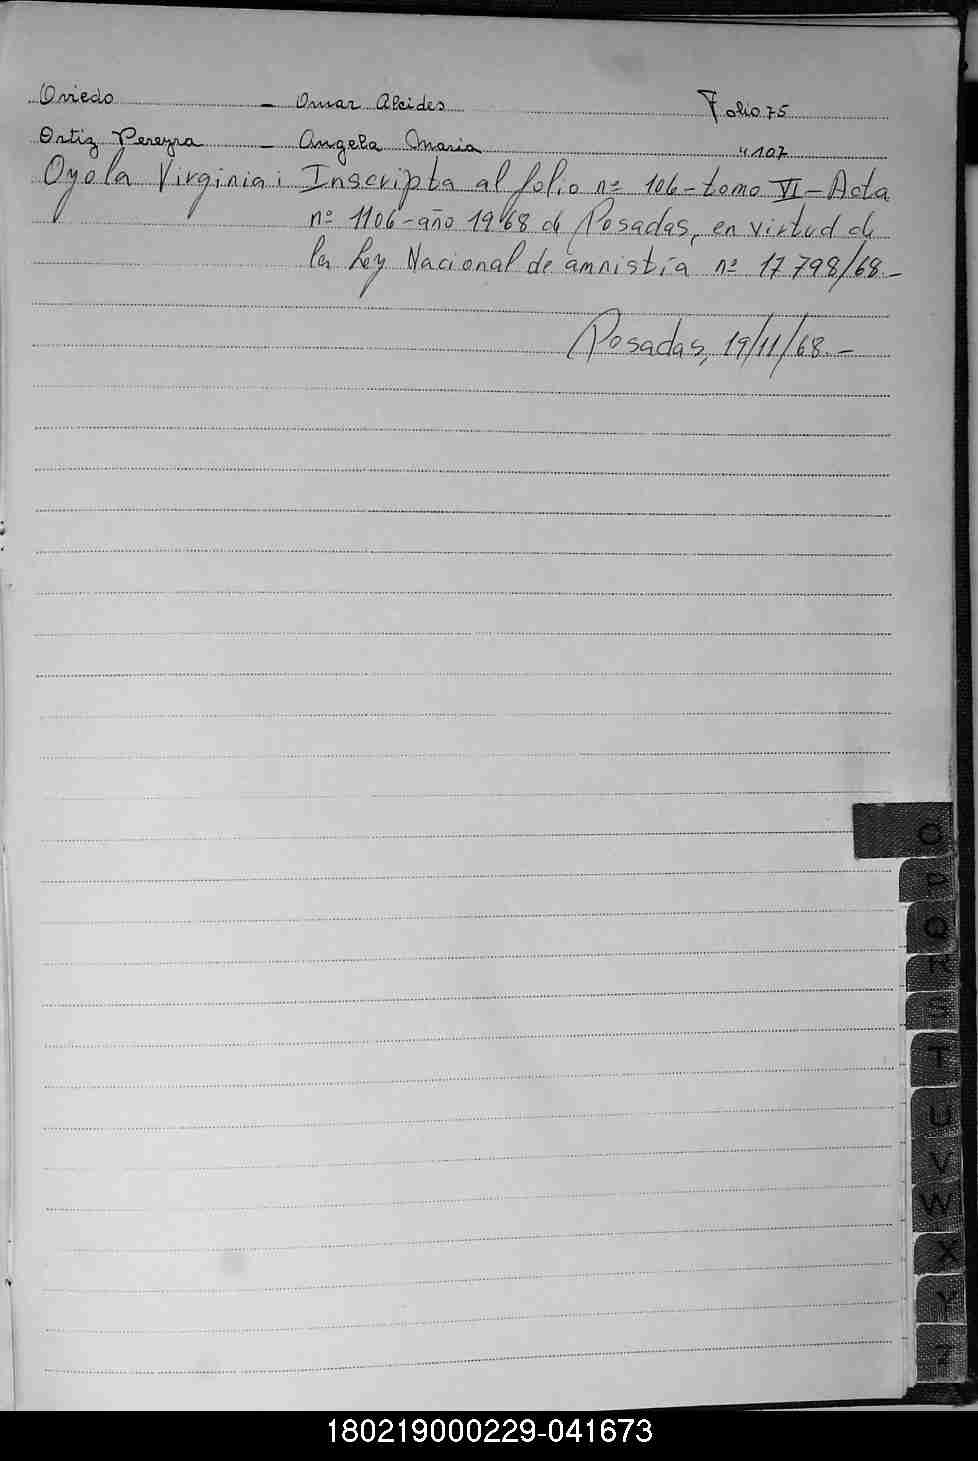 Oviedo - Omar Alcides Folio 75
Ortiz Pereyra - Angela Maria " 107
Oyola Virginia: Inscripta al folio nº 106-tomo VI-Acta
nº 1106-año 1968 de Posadas, en virtud de
la Ley Nacional de amnistía nº 17798/68.-
Posadas, 19/11/68.-
O
P
Q
R
S
T
U
V
W
X
Y
Z
180219000229-041673